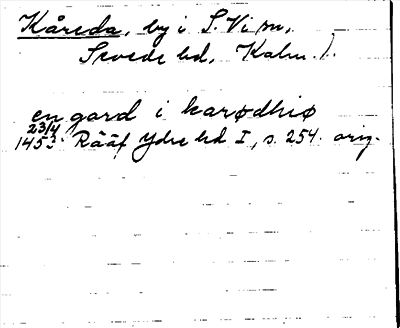 Kåreda, by i S. Vi sn,
Sevede hd, Kalm. l.
en gard i karødhiø
23/4
145 Rääf Ydre hd I, s. 254. orig.